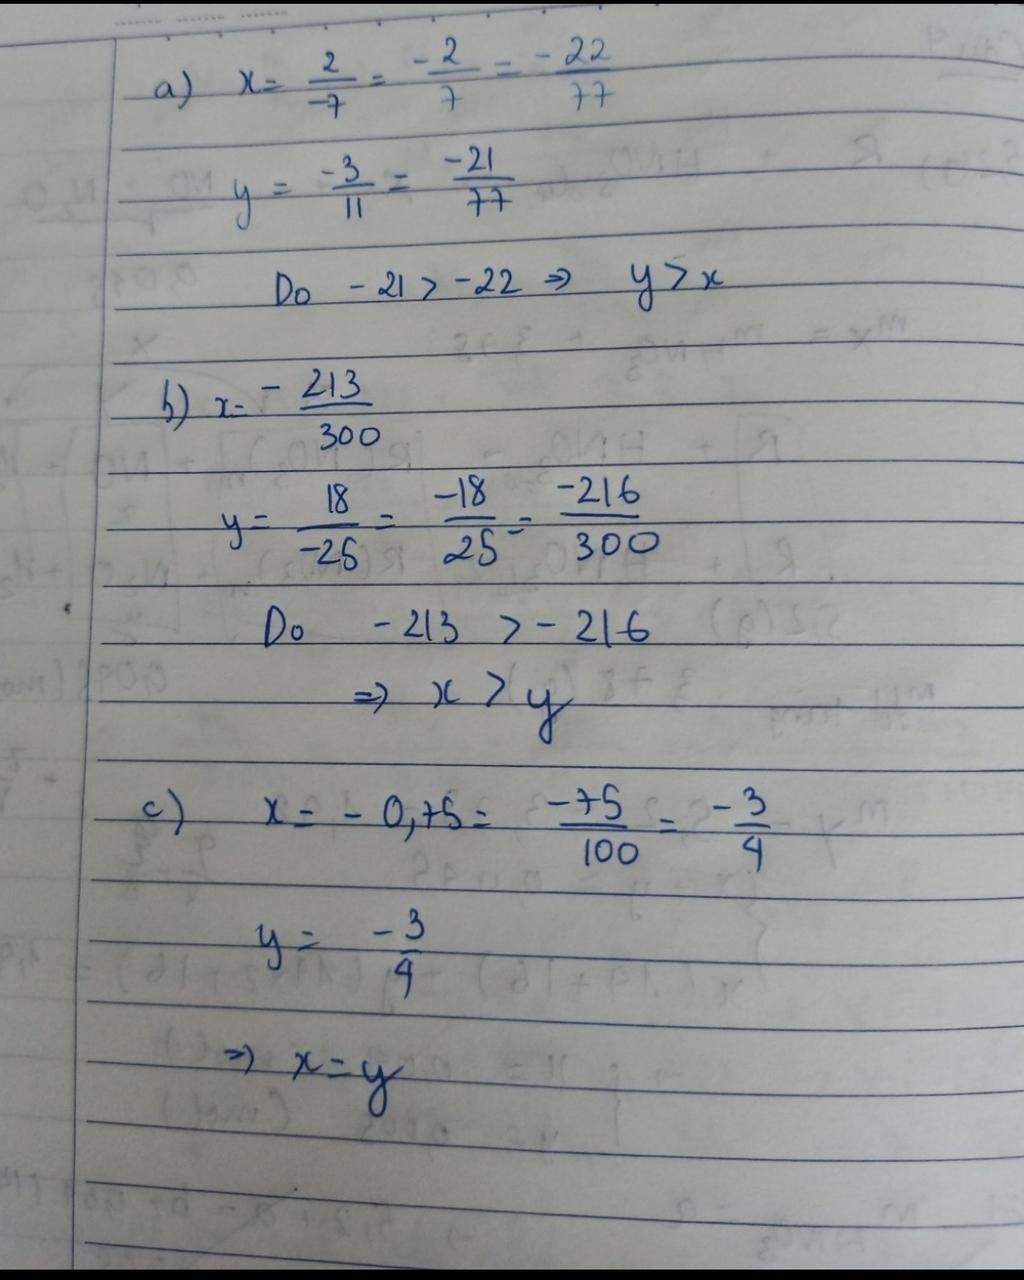 a) x = 2/-7 = -2/7 = -22/77
y = -3/11 = -21/77
Do -21 > -22 => y > x
b) x = -213/300
y = 18/-25 = -18/25 = -216/300
Do -213 > -216
=> x > y
c) x = -0,75 = -75/100 = -3/4
y = -3/4
=> x = y